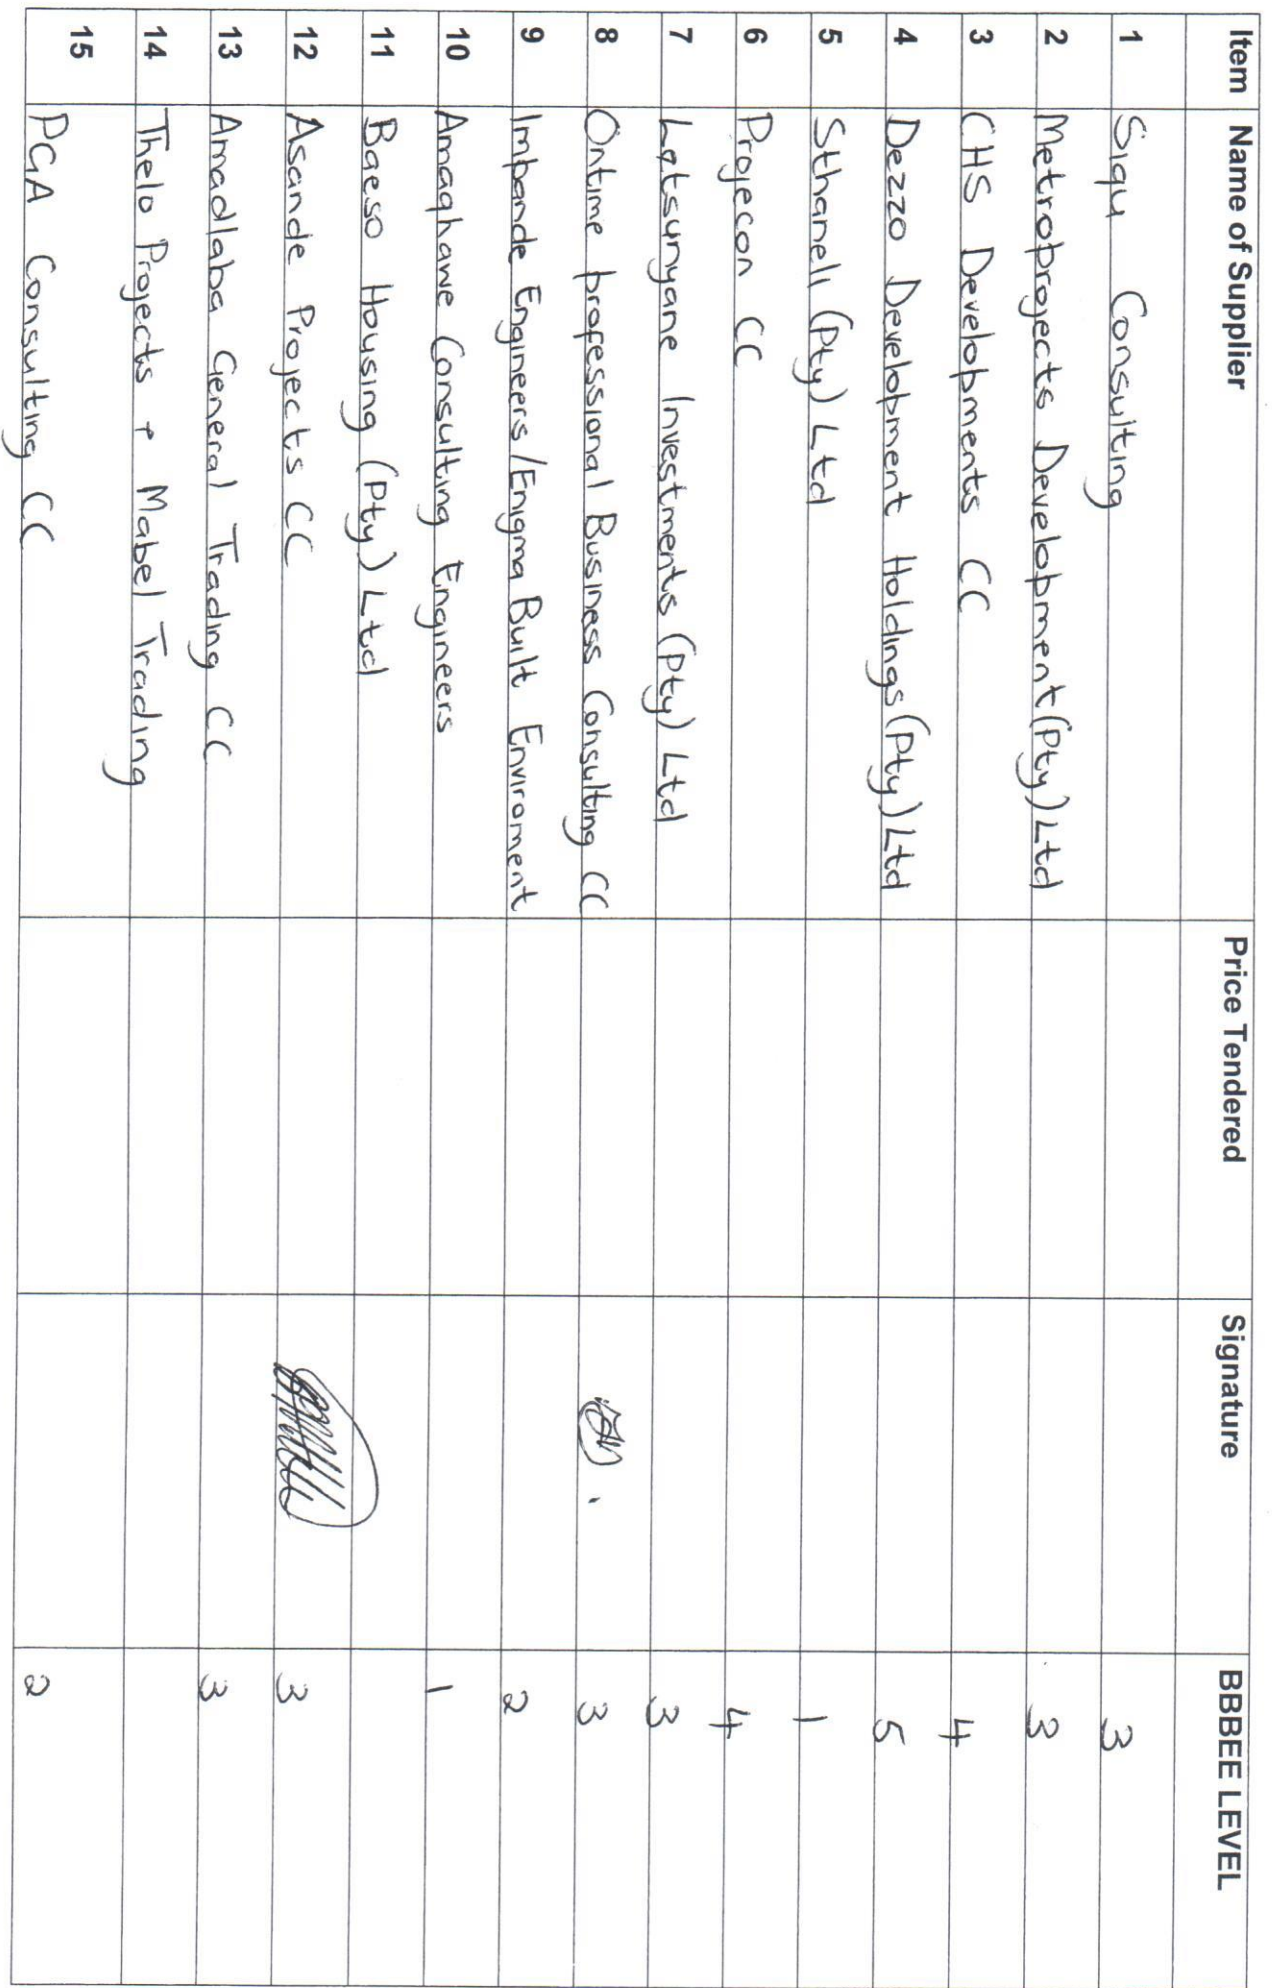 Item Name of Supplier Price Tendered Signature BBBEE LEVEL
1 Siqu Consulting 3
2 Metroprojects Development (Pty) Ltd 3
3 CHS Developments CC 4
4 Dezzo Development Holdings (Pty) Ltd 5
5 Sthaneli (Pty) Ltd 1
6 Projecon CC 4
7 Letsunyane Investments (Pty) Ltd 3
8 Ontime professional Business Consulting CC 3
9 Impande Engineers/Enigma Built Enviroment 2
10 Amaqhawe Consulting Engineers 1
11 Baeso Housing (Pty) Ltd
12 Asande Projects CC 3
13 Amadlaba General Trading CC 3
14 Thelo Projects + Mabel Trading
15 PGA Consulting CC 2